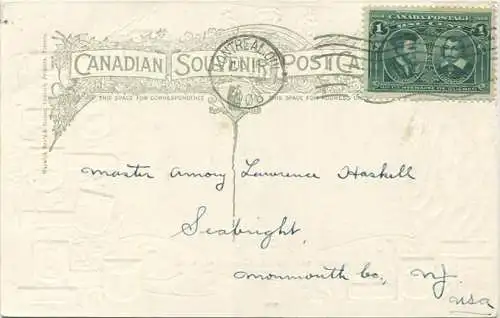 CANADIAN SOUVENIR POST CA
THIS SPACE FOR CORRESPONDENCE
THIS SPACE FOR ADDRESS ON
MONTREAL
CANADA POSTAGE
1 1
Master Amory Lawrence Haskell
Seabright,
Monmouth Co, NJ
USA